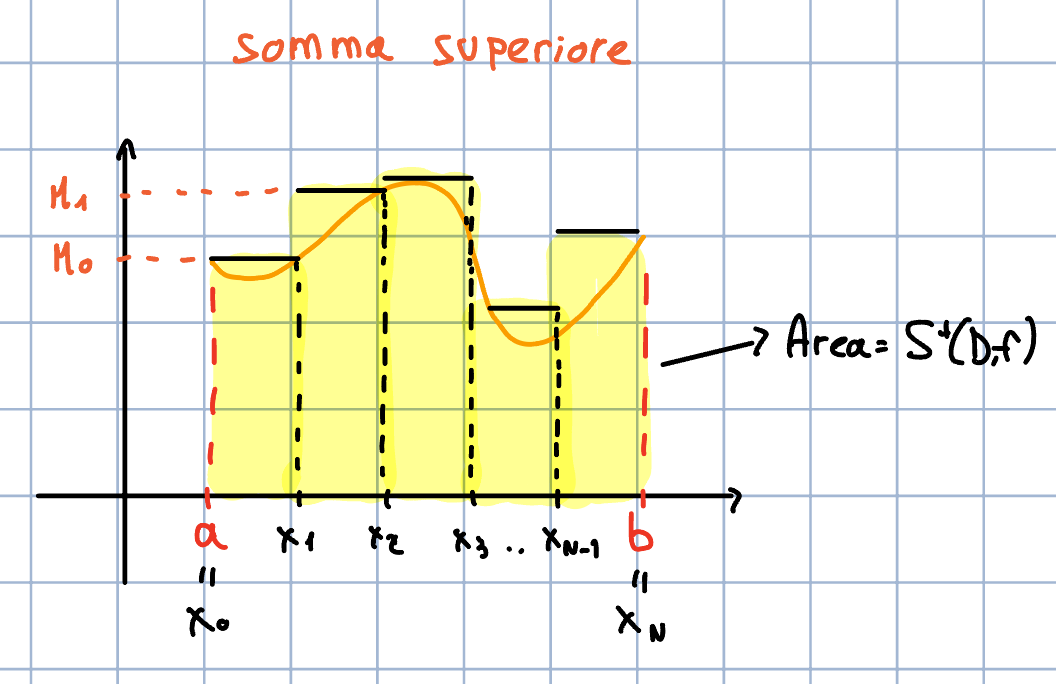 somma superiore
M₁
M₀
Area = S⁺(D,f)
a x₁ x₂ x₃ .. x_N-1 b
= =
x₀ x_N